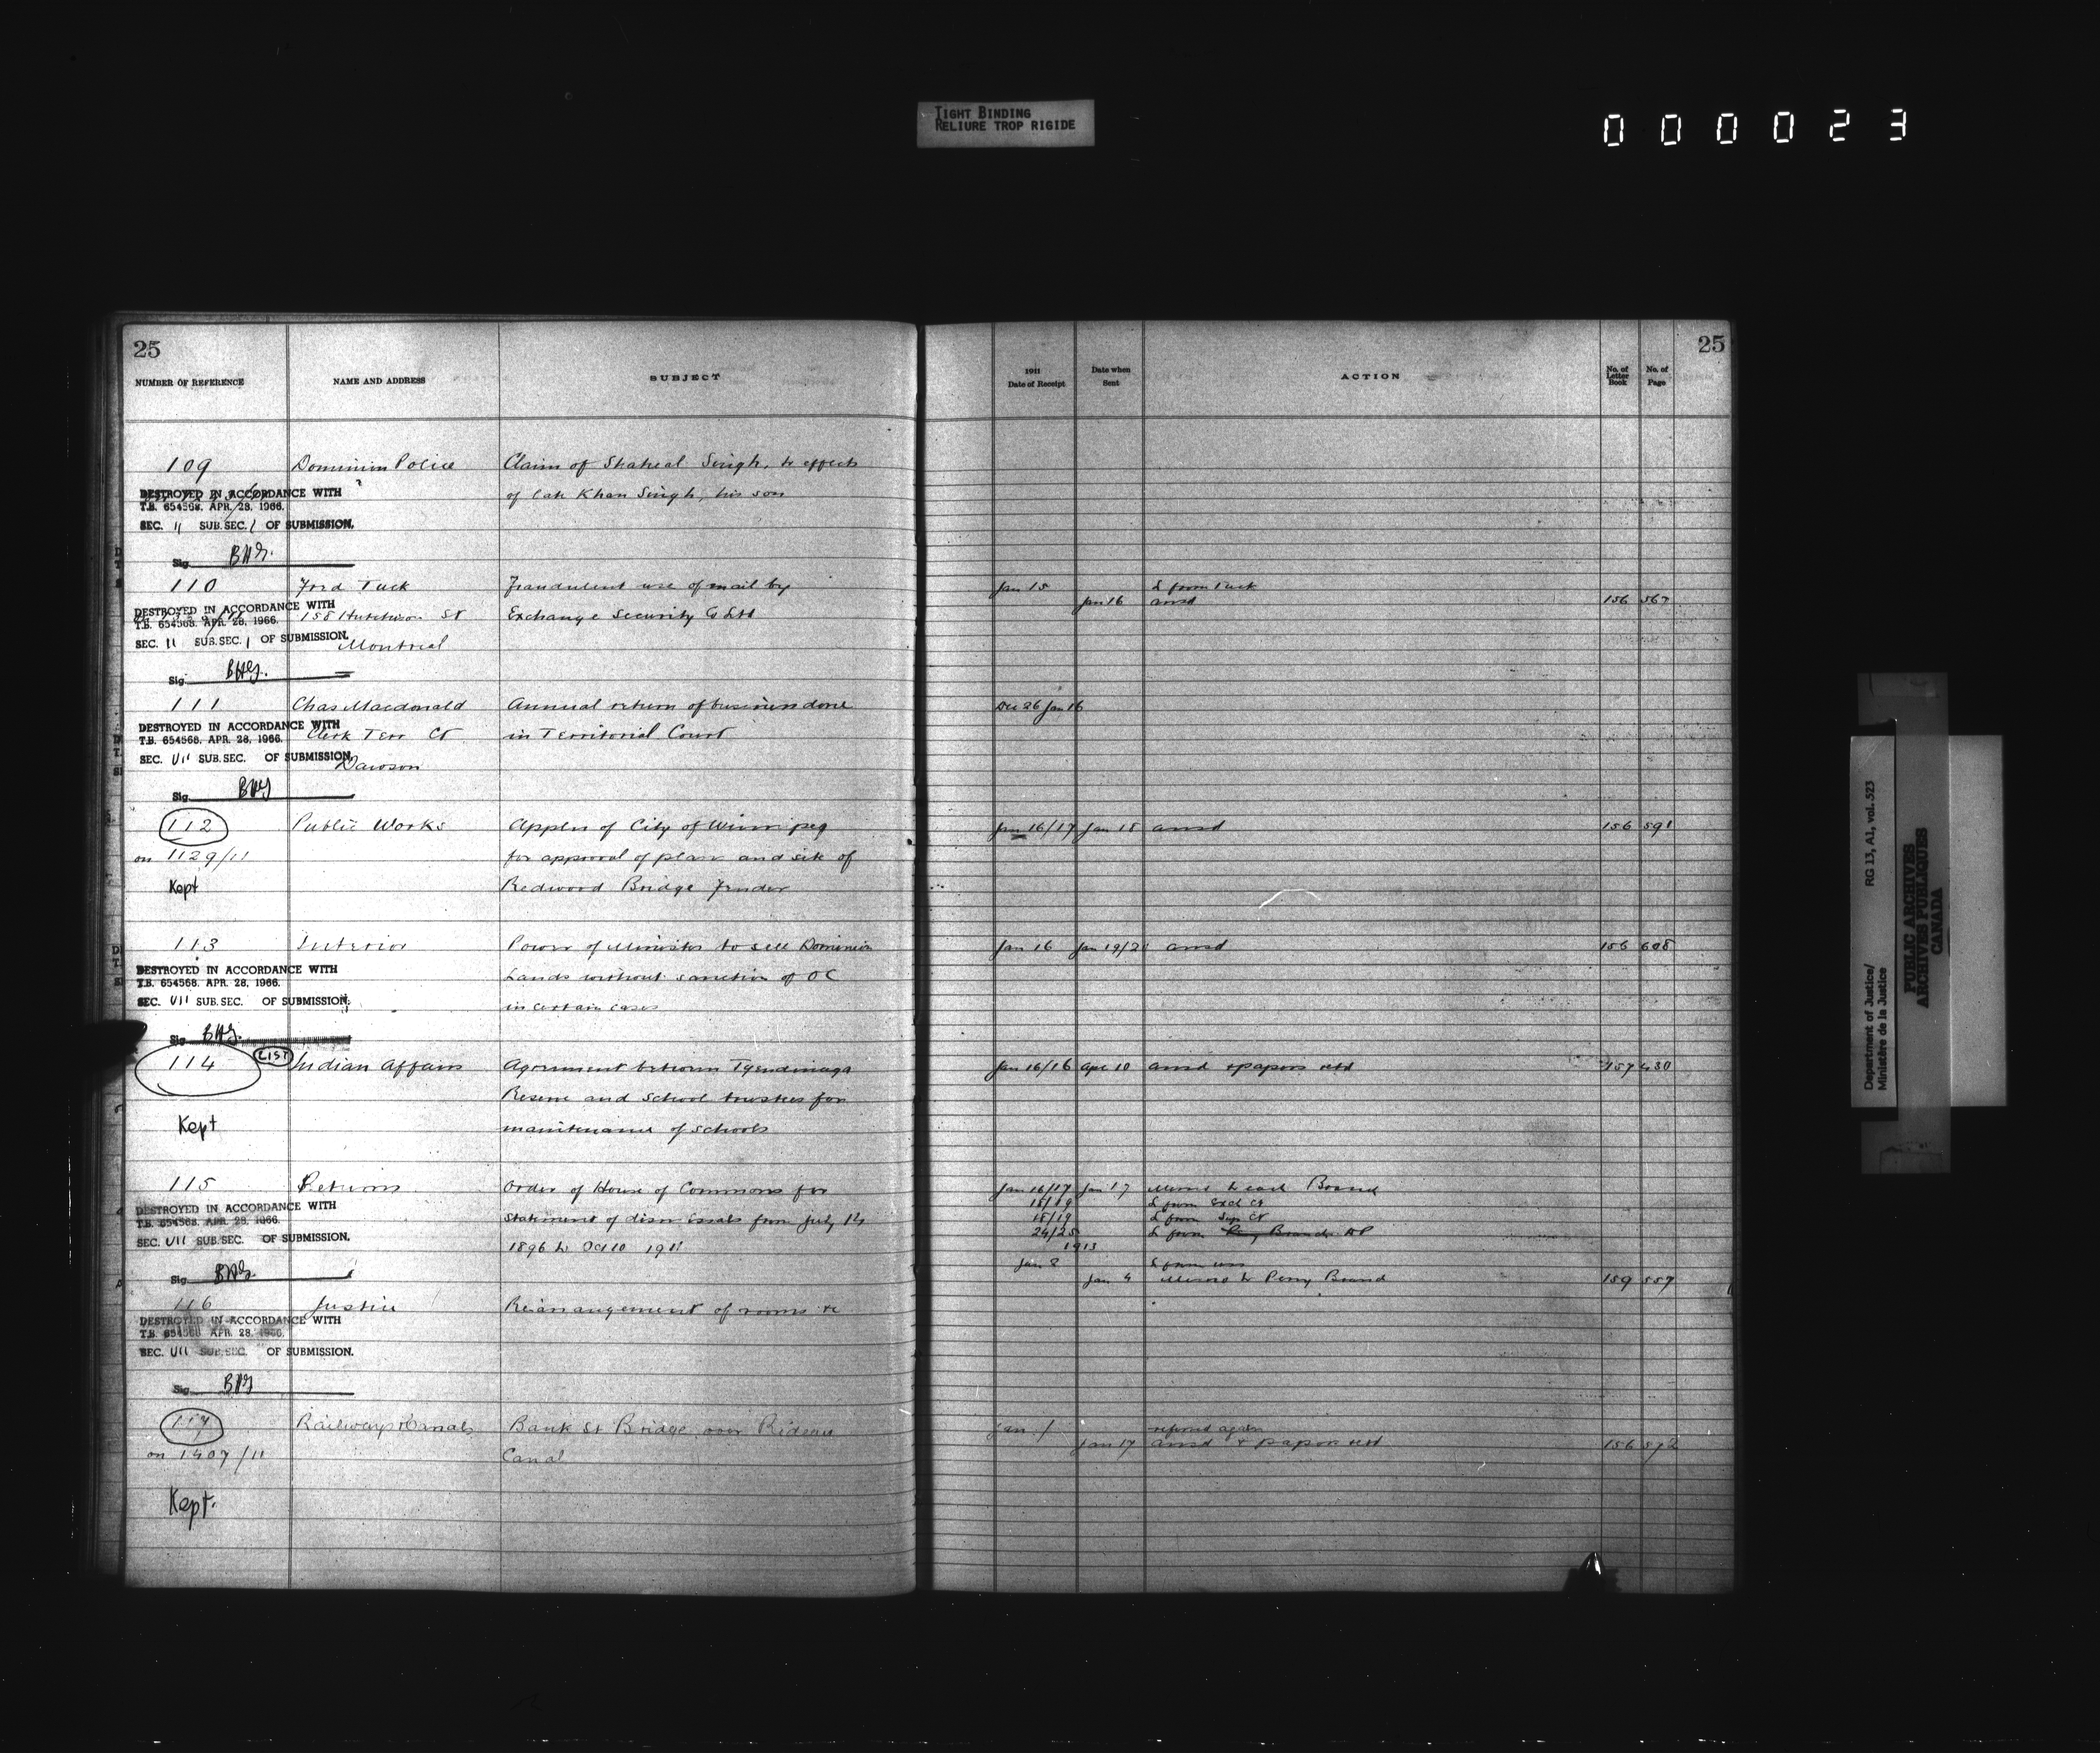 TIGHT BINDING
RELIURE TROP RIGIDE
000023
25
NUMBER OF REFERENCE NAME AND ADDRESS SUBJECT
109 Dominion Police Claim of Singh, to effects
of late Khan Singh, his son
DESTROYED IN ACCORDANCE WITH
T.B. 654568. APR. 28, 1966.
SEC. 11 SUB.SEC. 1 OF SUBMISSION.
Sig.
110 Ford Tuck Fraudulent use of mail by
158 Hutchison St Exchange Security Co Ltd
Montreal
DESTROYED IN ACCORDANCE WITH
T.B. 654568. APR. 28, 1966.
SEC. 11 SUB.SEC. 1 OF SUBMISSION.
Sig.
111 Chas Macdonald Annual return of business done
Clerk Terr Ct in Territorial Court
Dawson
DESTROYED IN ACCORDANCE WITH
T.B. 654568. APR. 28, 1966.
SEC. VII SUB.SEC. OF SUBMISSION.
Sig.
112 Public Works Appln of City of Winnipeg
on 1129/11 for approval of plans and site of
Kept Redwood Bridge
113 Interior Power of Minister to sell Dominion
Lands without sanction of OC
in certain cases
DESTROYED IN ACCORDANCE WITH
T.B. 654568. APR. 28, 1966.
SEC. VII SUB.SEC. OF SUBMISSION.
Sig.
114 LIST Indian Affairs Agreement between Tyendinaga
Reserve and School trustees for
Kept maintenance of schools
115 Returns Order of House of Commons for
Statement of dismissals from July 14
1896 to Oct 10 1911
DESTROYED IN ACCORDANCE WITH
T.B. 654568. APR. 28, 1966.
SEC. VII SUB.SEC. OF SUBMISSION.
Sig.
116 Justice Rearrangement of rooms
DESTROYED IN ACCORDANCE WITH
T.B. 654568 APR. 28, 1966.
SEC. VII SUB.SEC. OF SUBMISSION.
Sig.
117 Railways & Canals Bank St Bridge over Rideau
on 1407/11 Canal
Kept.
25
1911
Date of Receipt Date when Sent ACTION No. of Letter Book No. of Page
Jan 15 L from Tuck
Jan 16 ansd 156 567
Dec 26 Jan 16
Jan 16/17 Jan 18 ansd 156 591
Jan 16 Jan 19/2 ansd 156 608
Jan 16/16 Apr 10 ansd & papers retd 157 430
Jan 16/17 Jan 17 Memo to each Branch
18/19 L from Excl Ct
18/19 L from Sup Ct
24/25 L from Branch DP
1913
Jan 2 L from
Jan 4 Memo to Peny Branch 159 557
Jan / referred again
Jan 17 ansd & papers retd 156 572
Department of Justice/ RG 13, A1, vol. 523
Ministère de la Justice
PUBLIC ARCHIVES
ARCHIVES PUBLIQUES
CANADA